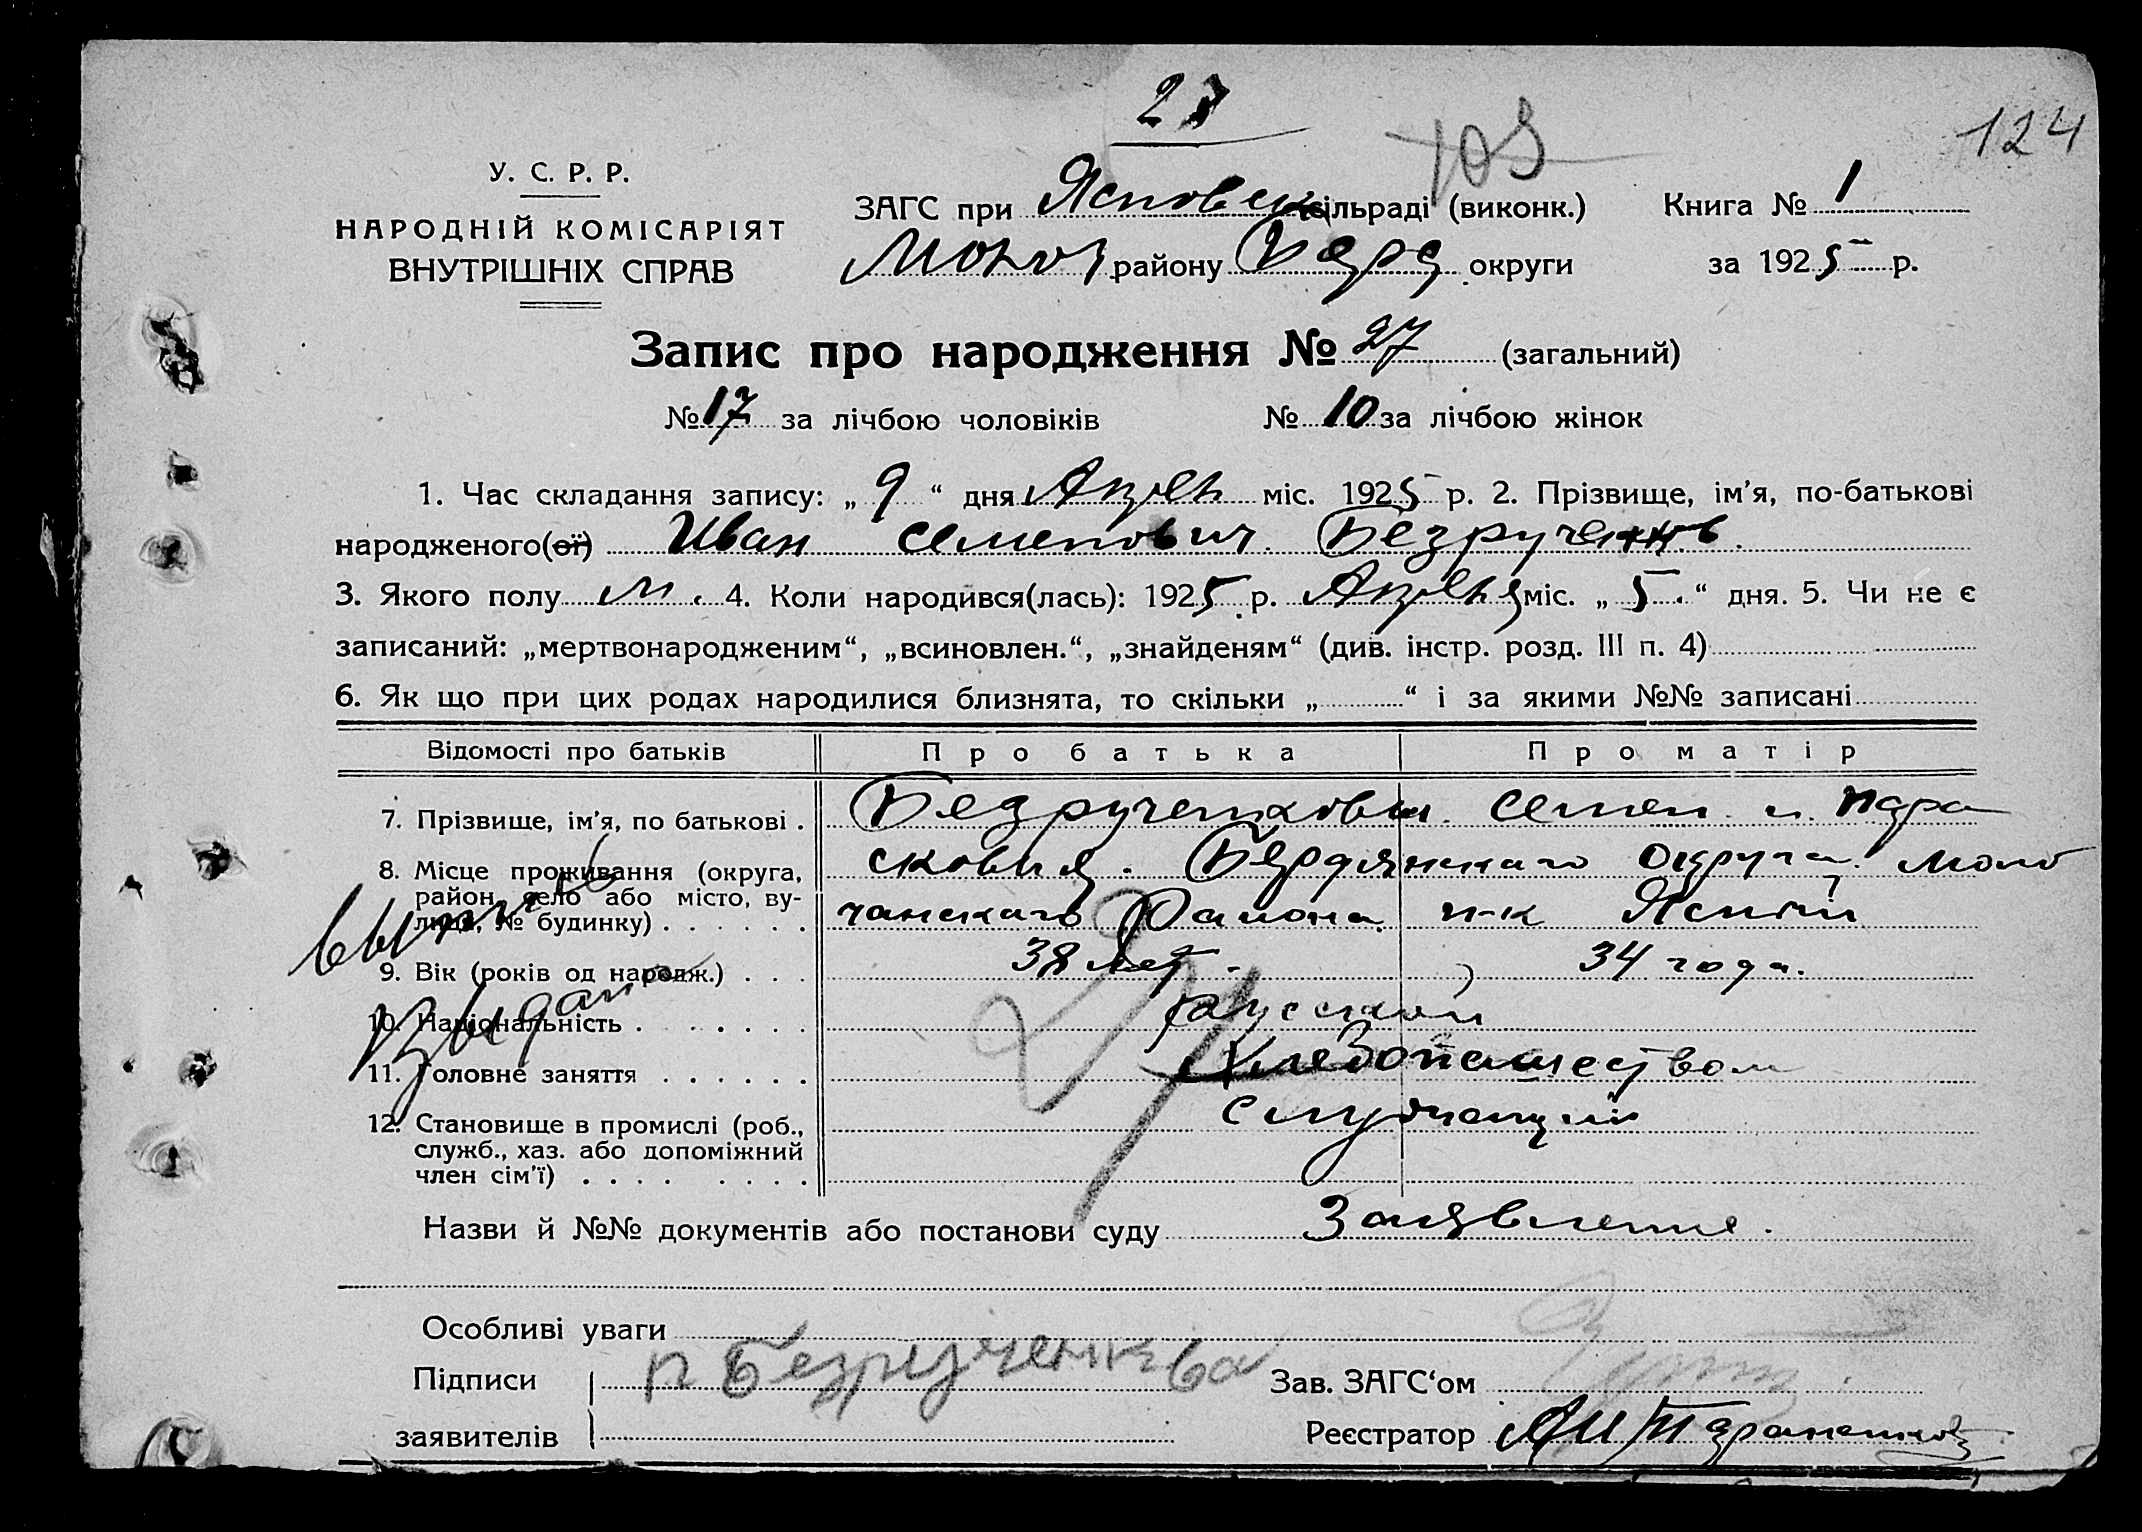 27
103
124
У. С. Р. Р.
НАРОДНІЙ КОМІСАРІЯТ
ВНУТРІШНІХ СПРАВ
ЗАГС при сільраді (виконк.) Книга № 1
району округи за 1925 р.
Запис про народження № 27 (загальний)
№ 17 за лічбою чоловіків № 10 за лічбою жінок
1. Час складання запису: „ 9 “ дня міс. 1925 р. 2. Прізвище, ім’я, по-батькові
народженого(ої) Иван Семенович Безрученков
3. Якого полу м. 4. Коли народився(лась): 1925 р. Апреля міс. „ 5. “ дня. 5. Чи не є
записаний: „мертвонародженим“, „всиновлен.“, „знайденям“ (див. інстр. розд. III п. 4)
6. Як що при цих родах народилися близнята, то скільки „ “ і за якими №№ записані
Відомості про батьків Про батька Про матір
7. Прізвище, ім’я, по батькові . Безрученковы Семен и Пара
8. Місце проживання (округа, сковия. Бердянскаго Округа Моло
район, село або місто, ву-
лиця, № будинку) . . . . . . чанскаго Района
9. Вік (років од народж.) . . . 38 лет. 34 года.
10. Національність . . . . . . . Русский
11. Головне заняття . . . . . . Хлебопашеством
12. Становище в промислі (роб.,
служб., хаз. або допоміжний
член сім’ї) . . . . . . . .
выпись
Выдана
27
Назви й №№ документів або постанови суду Заявление.
Особливі уваги
Підписи П Безрученкова Зав. ЗАГС‘ом
заявителів Реєстратор